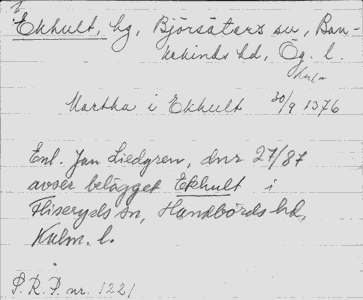 Ekhult, hg, Björsäters sn, Ban-
kekinds hd, Ög. l.
Martha i Ekhult 30/9 1376
Enl. Jan Liedgren, dnr 27/87
avser belägget Ekhult i
Fliseryds sn, Handbörds hd,
Kalm. l.
P. R. P. nr. 1221